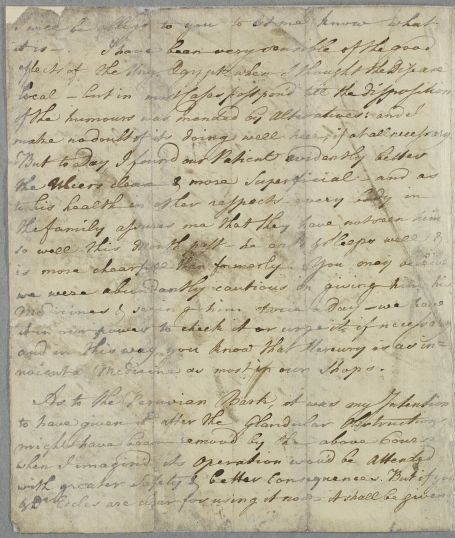 be to you to let me know what
it is – I have been very sensible of the good
effects of the Ung: Egypt: when I thought the disease
local – but in most cases postpond till the disposition
of the humours was mended by Alteratives: and I
make no doubt of its doing well here, if at all necessary
But to Day I found our Patient evidently better
the Ulcers clean & more Superficial – and as
to his health in other respects – every body in
the family assures me that they have not seen him
so well this month past – he and Sleeps well &
is more chearfull than formerly – You may believe
we were abundantly cautious in giving him his
Medicines & seeing him twice a Day – we have
it in our power to check it or urge it if necessary
and in this way you know that Mercury is as in-
nocent a Medicine as most in our Shops.
As to the Peruvian Bark, it was my Intention
to have given it after the Glandular Obstructions
might have been remov'd by the above Course
when I imagined its Operation would be Attended
with greater Safety & better Consequences. But if you
& Dr Eccles are clear for using it now – it shall be given